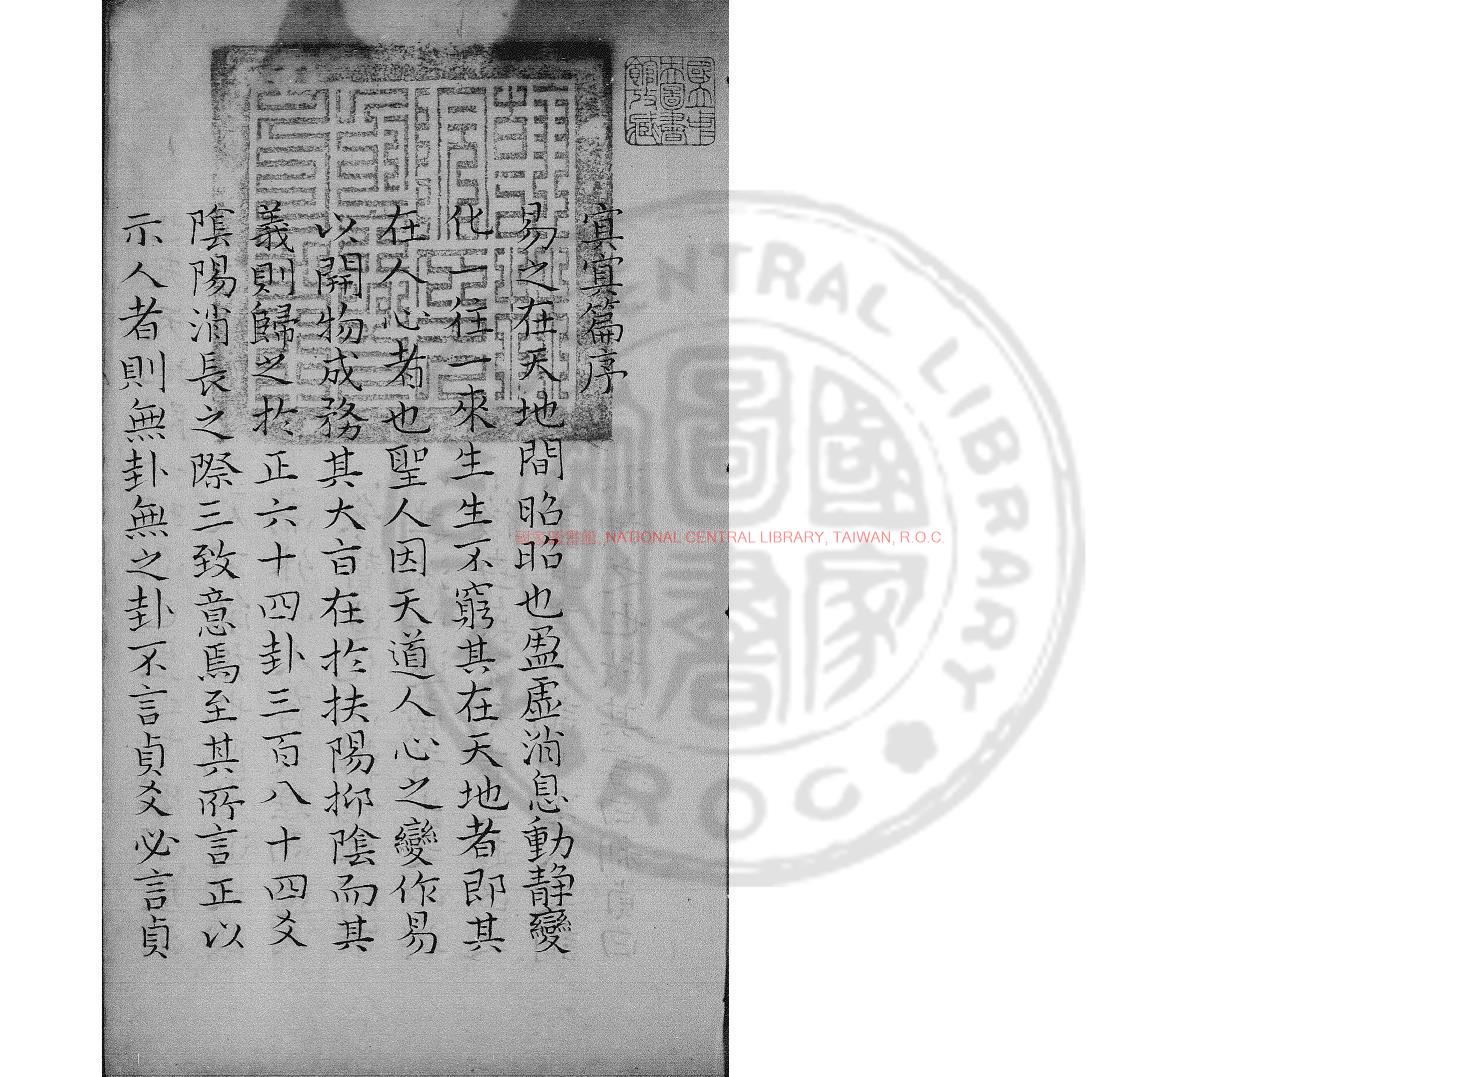 寘寘篇序
易之在天地間昭昭也盈虛消息動静變
化一往一來生生不窮其在天地者即其
在人心者也聖人因天道人心之變作易
以開物成務其大㫖在於扶陽抑陰而其
義則歸之於正六十四卦三百八十四爻
陰陽消長之際三致意焉至其所言正以
示人者則無卦無之卦不言貞爻必言貞
國立中央圖書館收藏
國家圖書館, NATIONAL CENTRAL LIBRARY, TAIWAN, R.O.C.
國家圖書
CENTRAL LIBRARY
R.O.C